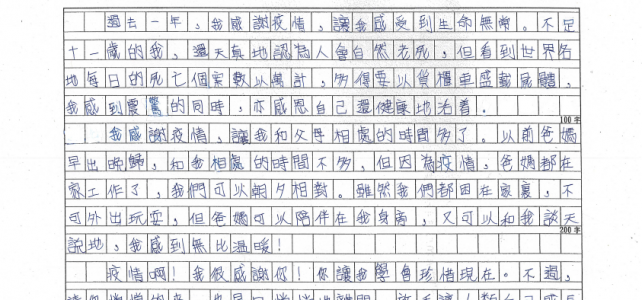 過去一年，我感謝疫情，讓我感受到生命無常。不足
十一歲的我，還天真地認為人會自然老死，但看到世界各
地每日的死亡個案數以萬計，多得要以貨櫃車盛載屍體，
我感到震驚的同時，亦感恩自己還健康地活着。
100字
我感謝疫情，讓我和父母相處的時間多了。以前爸媽
早出晚歸，和我相處的時間不多，但因為疫情，爸媽都在
家工作了，我們可以朝夕相對。雖然我們都困在家裏，不
可外出玩耍，但爸媽可以陪伴在我身旁，又可以和我談天
200字
說地，我感到無比溫暖！
疫情啊！我很感謝你！你讓我學會珍惜現在。不過，